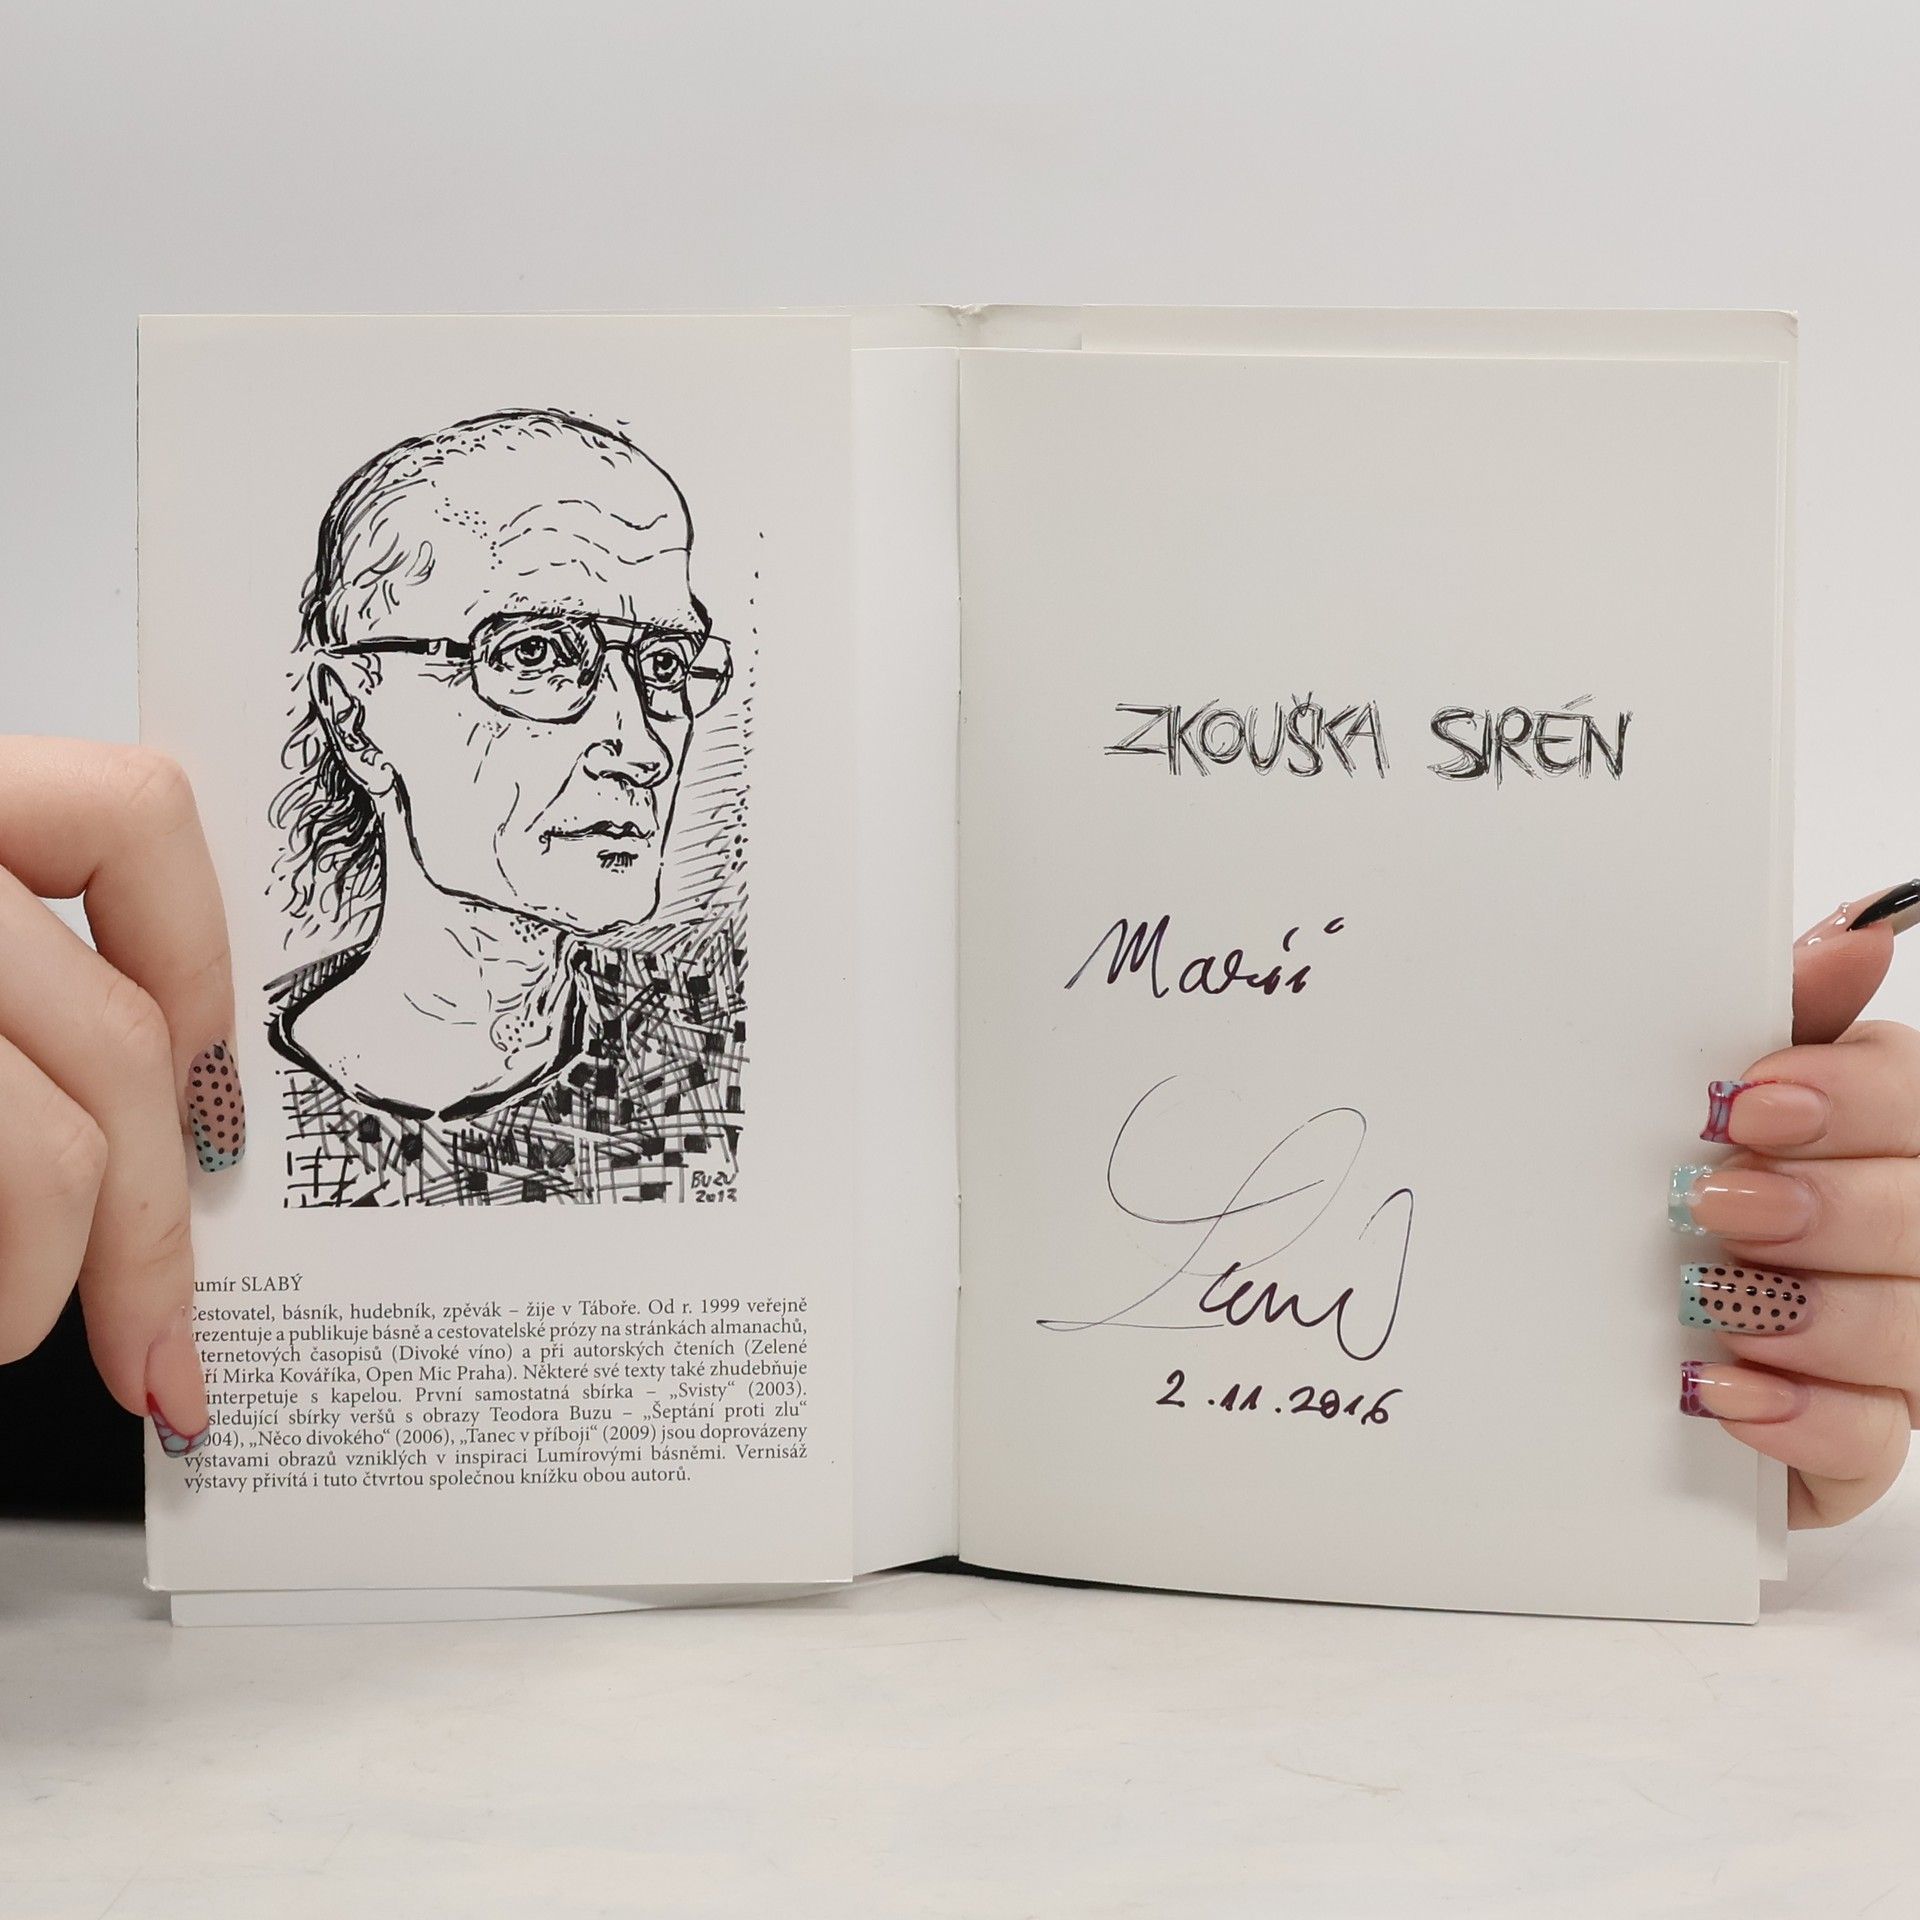 BUZU
2013
umír SLABÝ
Cestovatel, básník, hudebník, zpěvák – žije v Táboře. Od r. 1999 veřejně
rezentuje a publikuje básně a cestovatelské prózy na stránkách almanachů,
nternetových časopisů (Divoké víno) a při autorských čteních (Zelené
ří Mirka Kováříka, Open Mic Praha). Některé své texty také zhudebňuje
interpetuje s kapelou. První samostatná sbírka – „Svisty“ (2003).
sledující sbírky veršů s obrazy Teodora Buzu – „Šeptání proti zlu“
004), „Něco divokého“ (2006), „Tanec v příboji“ (2009) jsou doprovázeny
výstavami obrazů vzniklých v inspiraci Lumírovými básněmi. Vernisáž
výstavy přivítá i tuto čtvrtou společnou knížku obou autorů.
ZKOUŠKA SIRÉN
2.11.2016